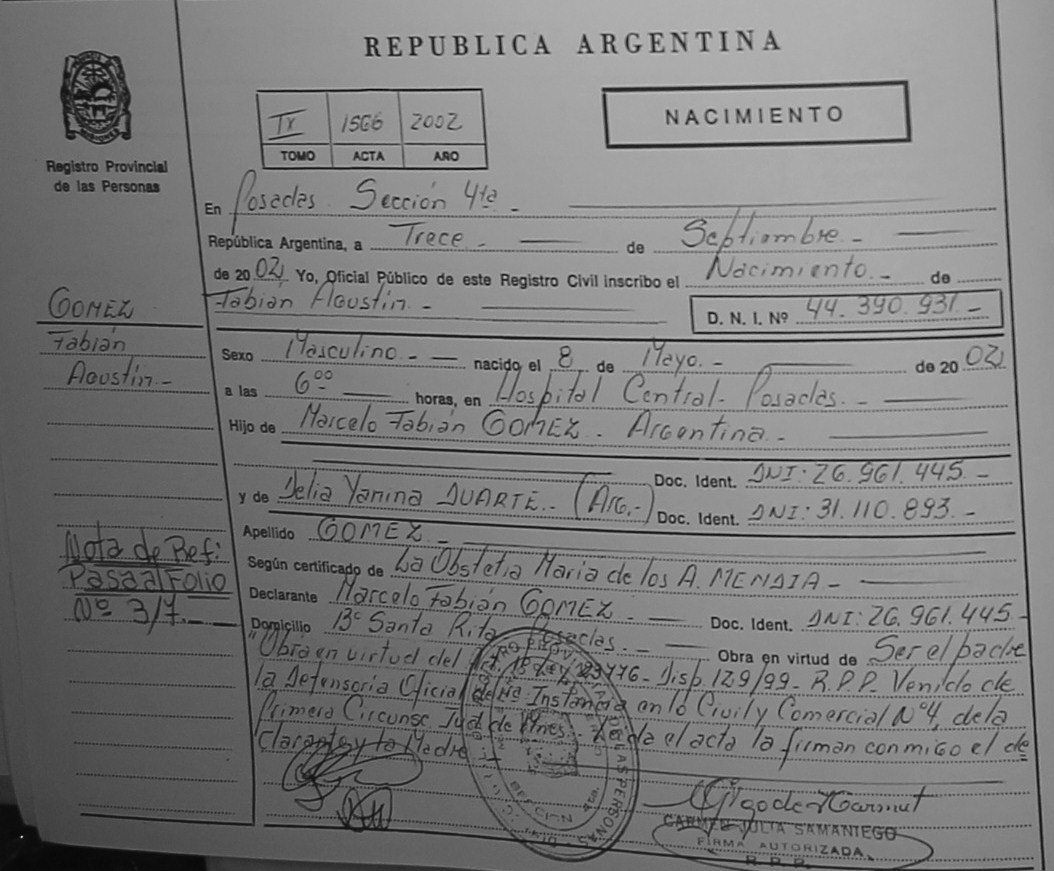 REPUBLICA ARGENTINA
NACIMIENTO
IX 1566 2002
TOMO ACTA AÑO
Registro Provincial
de las Personas
En Posadas Sección 4ta -
República Argentina, a Trece - de Septiembre -
de 2002 Yo, Oficial Público de este Registro Civil inscribo el Nacimiento - de
Fabián Agustín -
D. N. I. Nº 44.390.931 -
GOMEZ
Fabián
Agustín -
Sexo Masculino - nacido el 8 de Mayo - de 2002
a las 6 00 horas, en Hospital Central - Posadas -
Hijo de Marcelo Fabián GOMEZ - Argentina -
Doc. Ident. DNI: 26.961.445 -
y de Delia Yanina DUARTE - (Arg.-) Doc. Ident. DNI: 31.110.893 -
Apellido GOMEZ -
Según certificado de La Obstetia Maria de los A. MENDIA -
Declarante Marcelo Fabián GOMEZ - Doc. Ident. DNI: 26.961.445 -
Domicilio Bº Santa Rita Posadas - Obra en virtud de Ser el padre
Nota de Ref:
Pasa al Folio
Nº 317.-
"Obra en virtud del Art. 18 Ley 23776 - Disp. 129/99 - R.P.P. Venido de
la Defensoría Oficial de 1ª Instancia en lo Civil y Comercial Nº4, de la
Primera Circunsc. Jud de Mnes. Leída el acta la firman conmigo el de
clarante y la Madre
CARMEN JULIA SAMANIEGO
FIRMA AUTORIZADA
R. P. P.